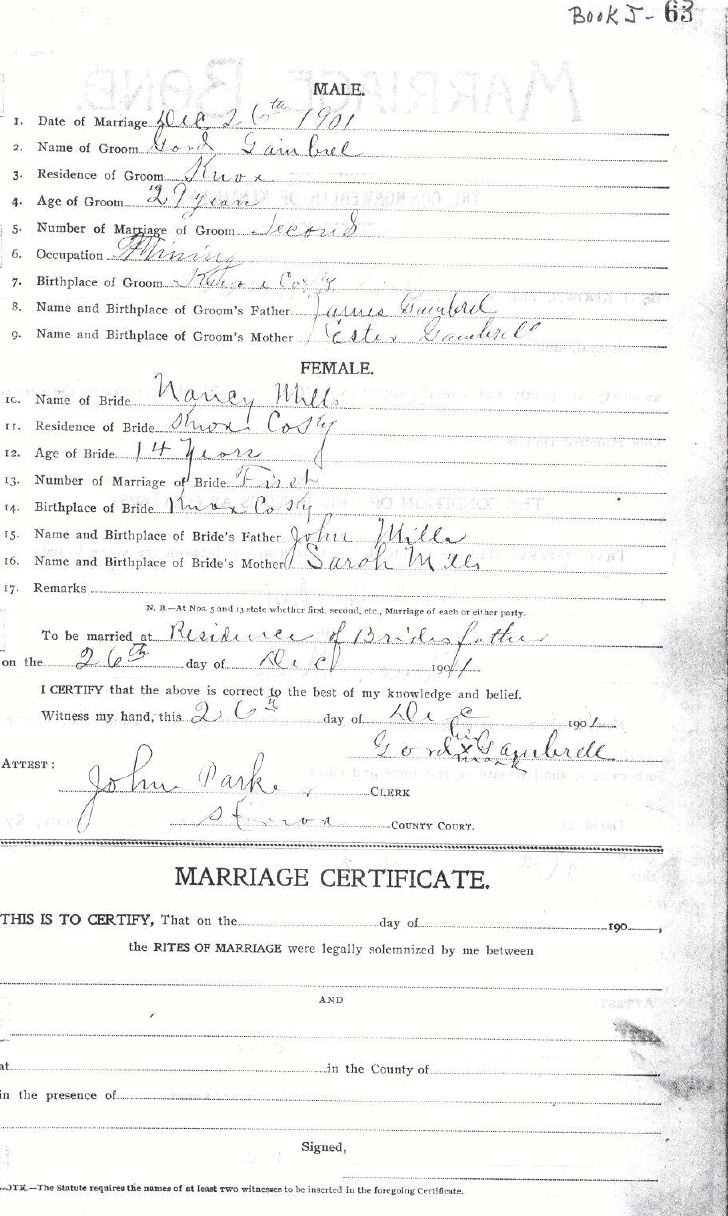 BOOK J - 63
MALE.
1. Date of Marriage Dec 26th 1901
2. Name of Groom Gord Gambrel
3. Residence of Groom Knox
4. Age of Groom 29 years
5. Number of Marriage of Groom Second
6. Occupation Mining
7. Birthplace of Groom Knox Co Ky
8. Name and Birthplace of Groom's Father James Gambrel
9. Name and Birthplace of Groom's Mother Ester Gambrell
FEMALE.
10. Name of Bride Nancy Mills
11. Residence of Bride Knox Co Ky
12. Age of Bride 14 Years
13. Number of Marriage of Bride First
14. Birthplace of Bride Knox Co Ky
15. Name and Birthplace of Bride's Father John Mills
16. Name and Birthplace of Bride's Mother Sarah Mills
17. Remarks
N. B.—At Nos. 5 and 13 state whether first, second, etc., Marriage of each or either party.
To be married at Residence of Brides father
on the 26th day of Dec 1901
I CERTIFY that the above is correct to the best of my knowledge and belief.
Witness my hand, this 26th day of Dec 1901
Gord his x mark Gambrell
ATTEST: John Parker, CLERK
Knox COUNTY COURT.
MARRIAGE CERTIFICATE.
THIS IS TO CERTIFY, That on the day of 190 ,
the RITES OF MARRIAGE were legally solemnized by me between
AND
at in the County of
in the presence of
Signed,
NOTE.—The Statute requires the names of at least two witnesses to be inserted in the foregoing Certificate.